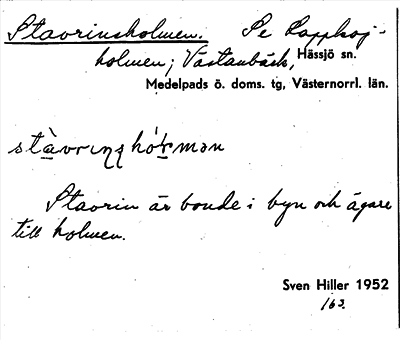 Stavrinsholmen. Se Lappkoj-
holmen; Västanbäck, Hässjö sn.
Medelpads ö. doms. tg, Västernorrl. län.
Stavrin är bonde i byn och ägare
till holmen.
Sven Hiller 1952
163.